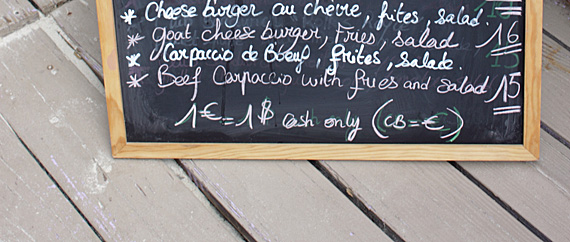 * Cheese burger au chèvre, frites, salad.
* goat cheese burger, Fries, salad 16
* Carpaccio de Bœuf, frites, salade.
* Beef Carpaccio with fries and salad 15
1€ = 1$ Cash only (CB = €)